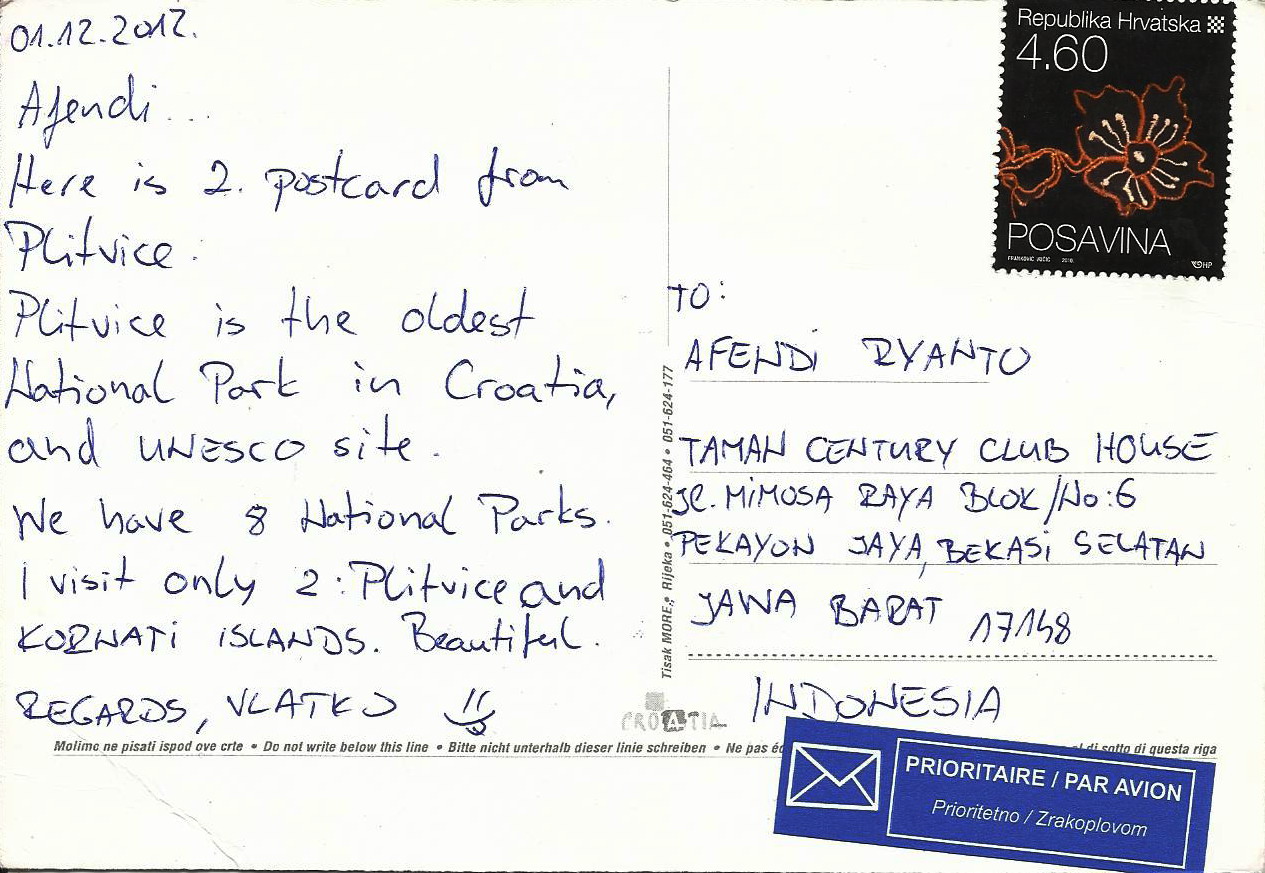 01.12.2012.
Afendi...
Here is 2. postcard from
Plitvice.
Plitvice is the oldest
National Park in Croatia,
and UNESCO site.
We have 8 National Parks.
I visit only 2: Plitvice and
KORNATI ISLANDS. Beautiful.
REGARDS, VLATKO
Republika Hrvatska
4.60
POSAVINA
2010.
HP
TO:
AFENDI RYANTO
TAMAN CENTURY CLUB HOUSE
JL. MIMOSA RAYA BLOK/No:6
PEKAYON JAYA, BEKASI SELATAN
JAWA BARAT 17148
INDONESIA
Tisak MORE, Rijeka • 051-624-464 • 051-624-177
CROATIA
Molimo ne pisati ispod ove crte • Do not write below this line • Bitte nicht unterhalb dieser linie schreiben • Ne pas di sotto di questa riga
PRIORITAIRE / PAR AVION
Prioritetno / Zrakoplovom